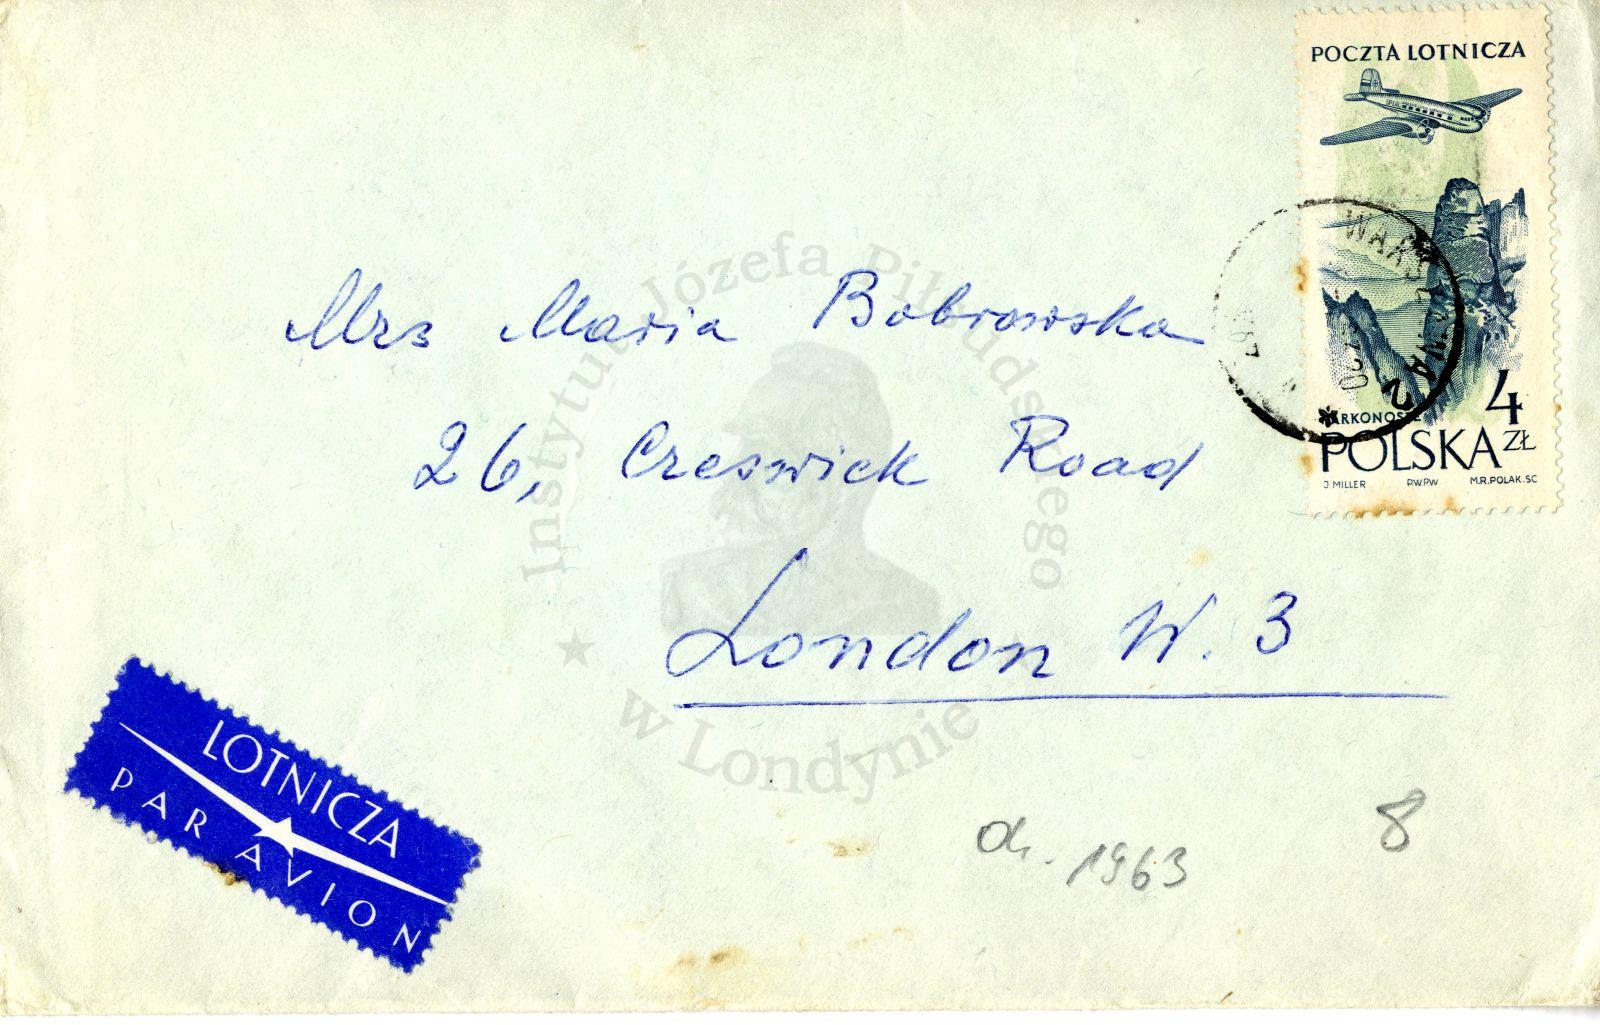 POCZTA LOTNICZA
WARSZAWA 2
KARKONOSZE
4 ZŁ
POLSKA
J MILLER PWPW M.R.POLAK.SC
Mrs Maria Bobrowska
26, Creswick Road
London W. 3
LOTNICZA
PAR AVION
1963
8
Instytut Józefa Piłsudskiego
w Londynie